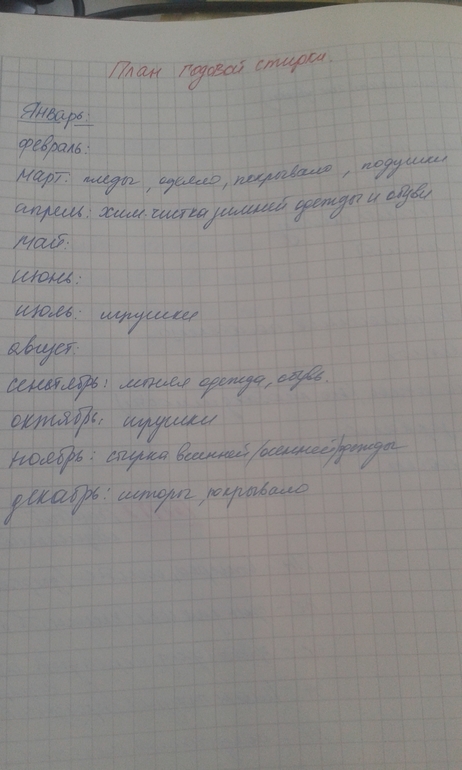 План годовой стирки.
Январь:
февраль:
март: пледы, одеяло, покрывало, подушки
апрель: хим.чистка зимней одежды и обуви
май:
июнь:
июль: игрушки
август:
сенстябрь: летняя одежда, обувь.
октябрь: игрушки
ноябрь: стирка весенней/осенней одежды
декабрь: шторы, покрывало